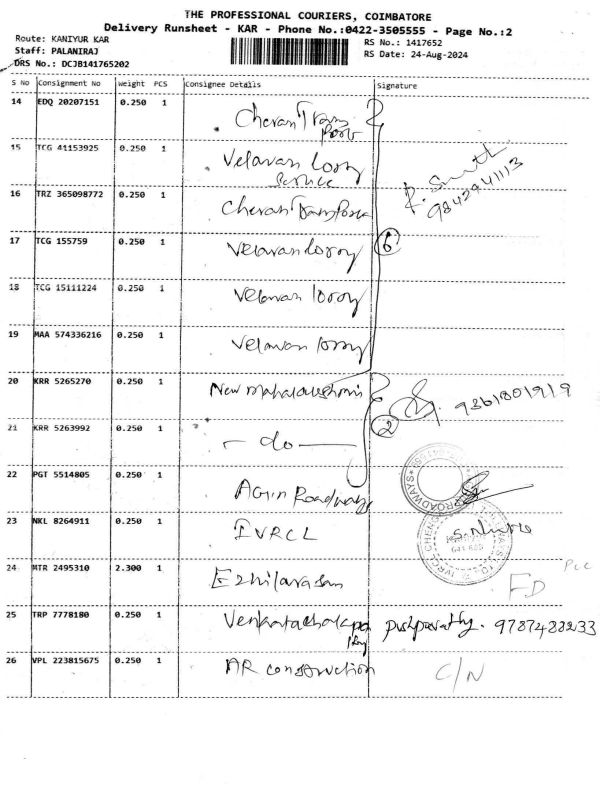 THE PROFESSIONAL COURIERS, COIMBATORE
Delivery Runsheet - KAR - Phone No.:0422-3505555 - Page No.:2
Route: KANIYUR KAR
RS No.: 1417652
Staff: PALANIRAJ
RS Date: 24-Aug-2024
DRS No.: DCJB141765202
S No Consignment No Weight PCS Consignee Details Signature
14 EDQ 20207151 0.250 1 Cheran Transport
15 TCG 41153925 0.250 1 Velavan Lorry Service
R. Smith
9842941113
16 TRZ 365098772 0.250 1 Cheran Transport
17 TCG 155759 0.250 1 Velavan lorry 6
18 TCG 15111224 0.250 1 Velavan lorry
19 MAA 574336216 0.250 1 Velavan lorry
20 KRR 5265270 0.250 1 New Mahalakshmi 9361801919
21 KRR 5263992 0.250 1 - do - 2
22 PGT 5514805 0.250 1 Agin Roadways
23 NKL 8264911 0.250 1 IVRCL
24 MTR 2495310 2.300 1 Ezhilarasan FD
25 TRP 7778180 0.250 1 9787488233
26 VPL 223815675 0.250 1 AR construction C/N